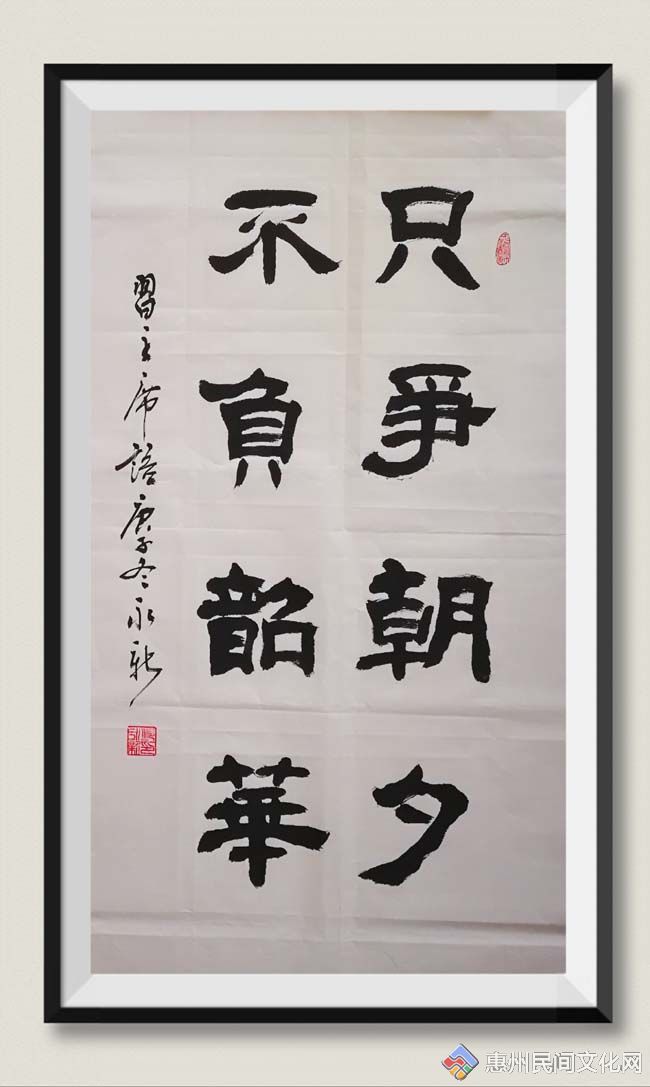 只爭朝夕
不負韶華
習主席語庚子冬永新
惠州民间文化网